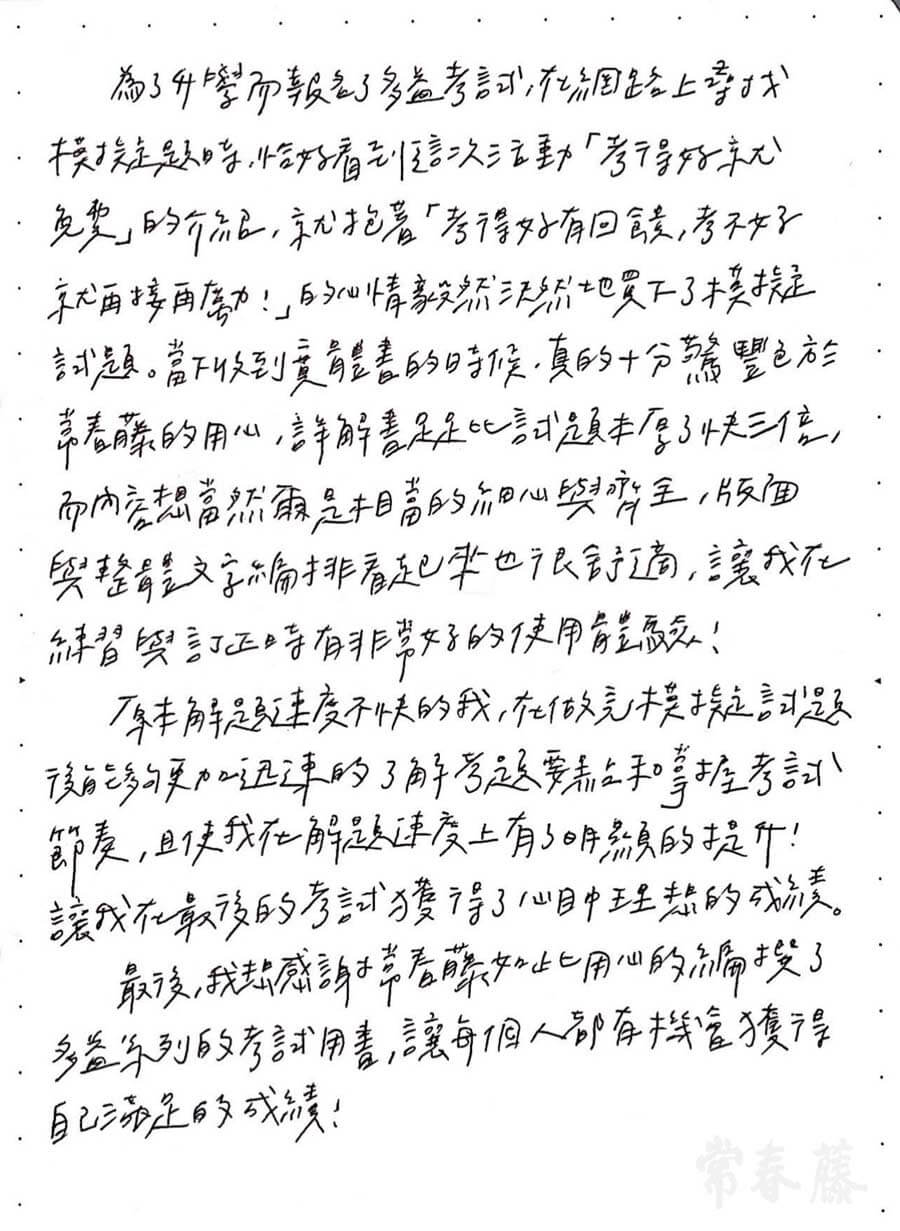 為了升學而報名了多益考試，在網路上尋找
模擬題時，恰好看到這次活動「考得好就
免費」的介紹，就抱著「考得好有回饋，考不好
就再接再厲！」的心情毅然決然地買下了模擬
試題。當下收到實體書的時候，真的十分驚豔於
常春藤的用心，詳解書足足比試題本厚了快三倍，
而內容想當然爾是相當的細心與齊全，版面
與整體文字編排看起來也很舒適，讓我在
練習與訂正時有非常好的使用體驗！
原本解題速度不快的我，在做完模擬試題
後能夠更加迅速的了解考題要點和掌握考試
節奏，且使我在解題速度上有了明顯的提升！
讓我在最後的考試獲得了心目中理想的成績。
最後，我想感謝常春藤如此用心的編撰了
多益系列的考試用書，讓每個人都有機會獲得
自己滿足的成績！
常春藤